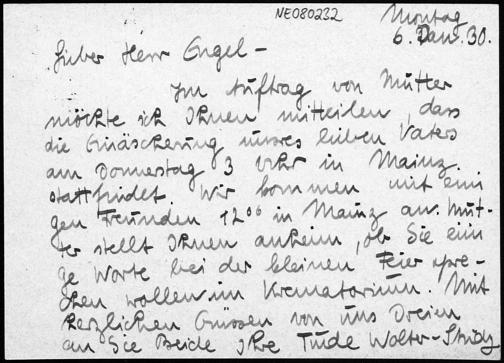 NE080232
Montag
6. Jan. 30.
Lieber Herr Engel –
Im Auftrag von Mutter
möchte ich Ihnen mitteilen, dass
die Einäscherung unsres lieben Vaters
am Donnerstag 3 Uhr in Mainz
stattfindet. Wir kommen mit eini
gen Freunden 12⁰⁰ in Mainz an. Mut-
ter stellt Ihnen anheim, ob Sie eini
ge Worte bei der kleinen Feier spre-
chen wollen im Krematorium. Mit
herzlichen Grüssen von uns Dreien
an Sie Beide Ihre Trude Wolter-